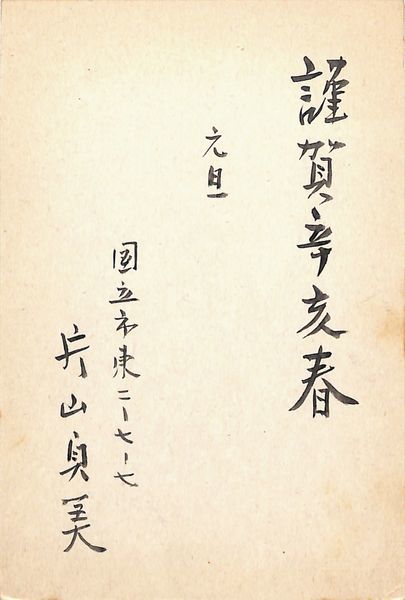 謹賀辛亥春
元旦
国立市東二ー七ー七
片山貞美